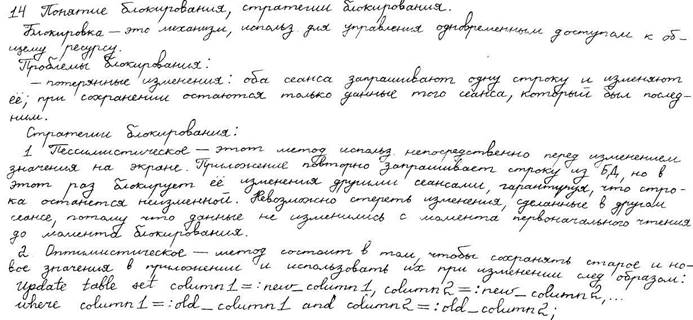 14 Понятие блокирования, стратегии блокирования.
Блокировка – это механизм, использ для управления одновременным доступом к об-
щему ресурсу.
Проблемы блокирования:
– потерянные изменения: оба сеанса запрашивают одну строку и изменяют
её; при сохранении остаются только данные того сеанса, который был послед-
ним.
Стратегии блокирования:
1 Пессимистическое – этот метод использ непосредственно перед изменением
значения на экране. Приложение повторно запрашивает строку из БД, но в
этот раз блокирует её изменения другими сеансами, гарантируя, что стро-
ка останется неизменной. Невозможно стереть изменения, сделанные в другом
сеансе, потому что данные не изменились с момента первоначального чтения
до момента блокирования.
2 Оптимистическое – метод состоит в том, чтобы сохранять старое и но-
вое значения в приложении и использовать их при изменении след образом:
Update table set column1=:new_column1, column2=:new_column2,...
where column1=:old_column1 and column2=:old_column2;